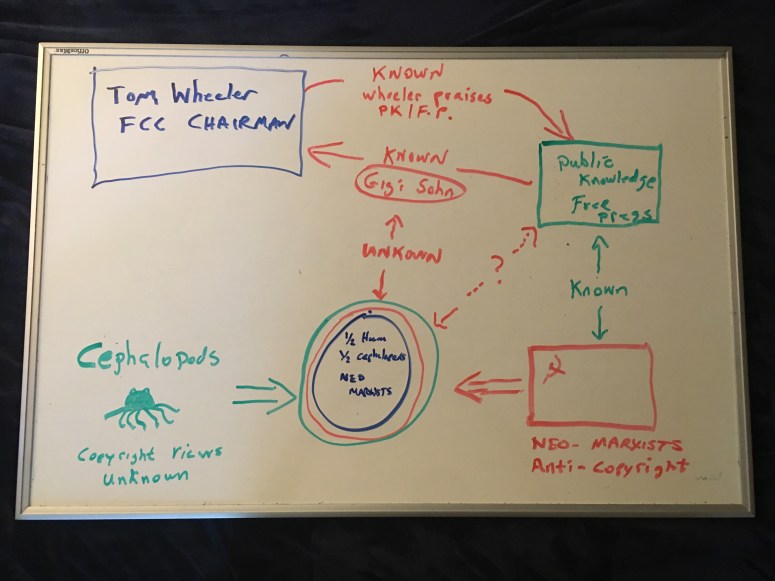 OfficeMax
Tom Wheeler
FCC CHAIRMAN
KNOWN
Wheeler praises
PK/F.P.
KNOWN
Gigi Sohn
UNKOWN
?
Public
Knowledge
Free
press
Known
Cephalopods
Copyright views
Unknown
1/2 Hum
1/2 cephalopods
NEO
MARXISTS
NEO-MARXISTS
Anti-copyright